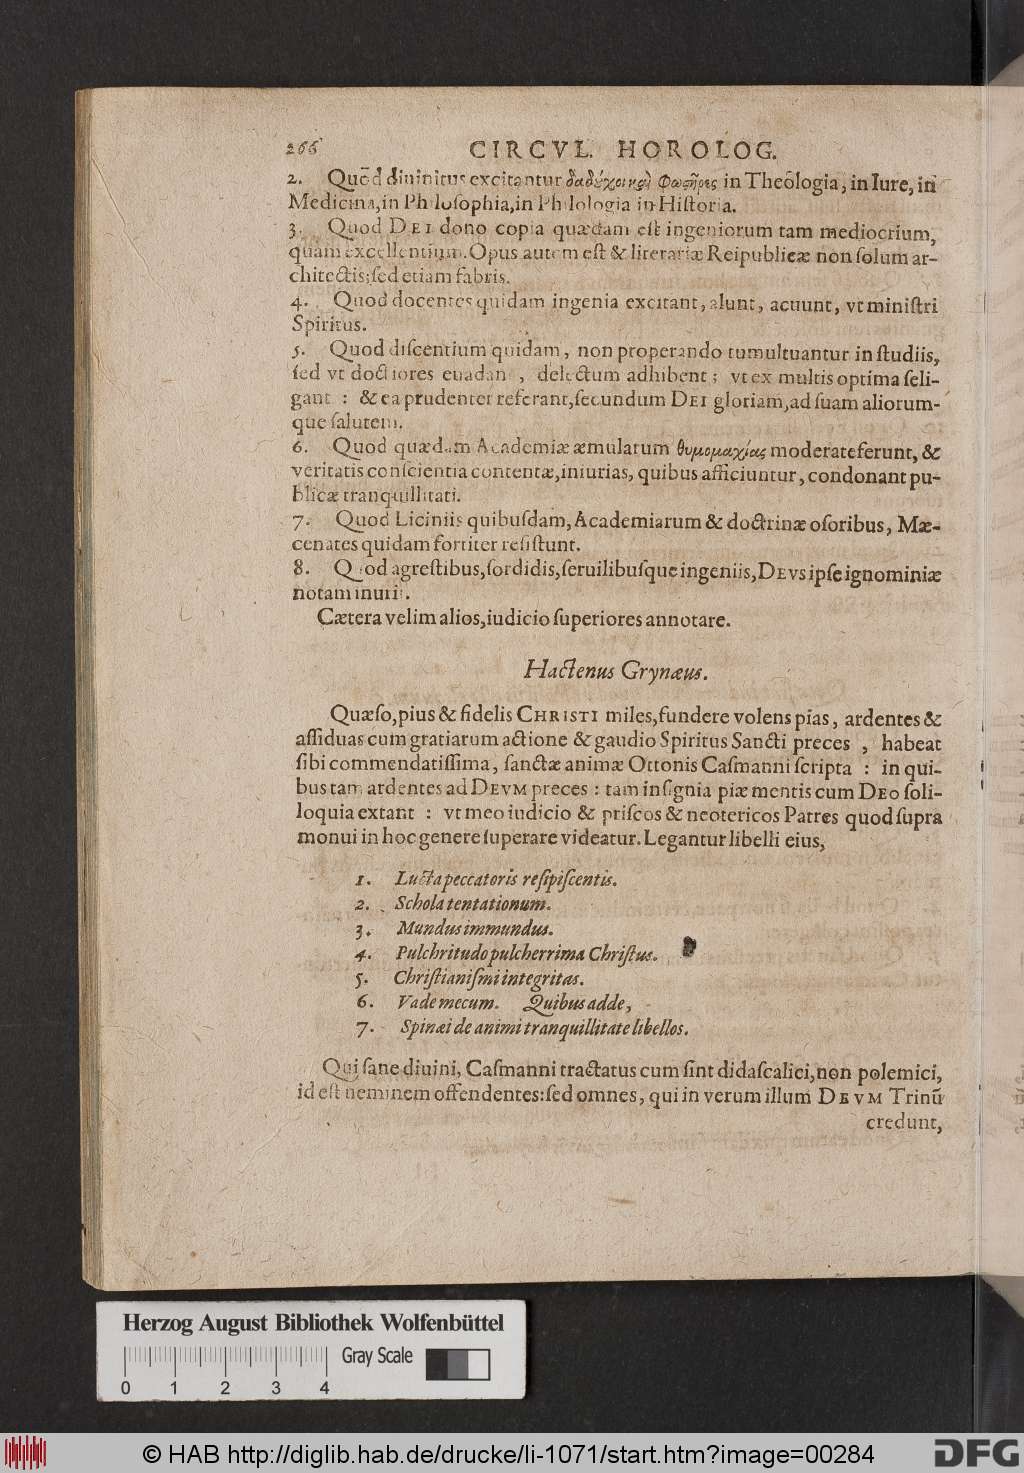 266 CIRCVL. HOROLOG.
2. Quòd diuinitus excitentur δαδύχοι καὶ Φωςῆρες in Theologia, in Iure, in
Medicina, in Philosophia, in Philologia in Historia.
3. Quod DEI dono copia quædam est ingeniorum tam mediocrium,
quàm excellentium. Opus autem est & literariæ Reipublicæ non solum ar-
chitectis; sed etiam fabris.
4. Quod docentes quidam ingenia excitant, alunt, acuunt, vt ministri
Spiritus.
5. Quod discentium quidam, non properando tumultuantur in studiis,
sed vt doctiores euadant, delectum adhibent; vt ex multis optima seli-
gant : & ea prudenter referant, secundum DEI gloriam, ad suam aliorum-
que salutem.
6. Quod quædam Academiæ æmularum θυμομαχίας moderate ferunt, &
veritatis conscientia contentæ, iniurias, quibus afficiuntur, condonant pu-
blicæ tranquillitati.
7. Quod Liciniis quibusdam, Academiarum & doctrinæ osoribus, Mæ-
cenates quidam fortiter resistunt.
8. Quod agrestibus, sordidis, seruilibusque ingeniis, DEVS ipse ignominiæ
notam inurit.
Cætera velim alios, iudicio superiores annotare.
Hactenus Grynæus.
Quæso, pius & fidelis CHRISTI miles, fundere volens pias, ardentes &
assiduas cum gratiarum actione & gaudio Spiritus Sancti preces , habeat
sibi commendatissima, sanctæ animæ Ottonis Casmanni scripta : in qui-
bus tam ardentes ad DEVM preces : tam insignia piæ mentis cum DEO soli-
loquia extant : vt meo iudicio & priscos & neotericos Patres quod supra
monui in hoc genere superare videatur. Legantur libelli eius,
1. Lucta peccatoris resipiscentis.
2. Schola tentationum.
3. Mundus immundus.
4. Pulchritudo pulcherrima Christus.
5. Christianismi integritas.
6. Vade mecum. Quibus adde,
7. Spinæi de animi tranquillitate libellos.
Qui sane diuini, Casmanni tractatus cum sint didascalici, non polemici,
id est neminem offendentes: sed omnes, qui in verum illum DEVM Trinū
credunt,
Herzog August Bibliothek Wolfenbüttel
Gray Scale
0 1 2 3 4
© HAB http://diglib.hab.de/drucke/li-1071/start.htm?image=00284
DFG